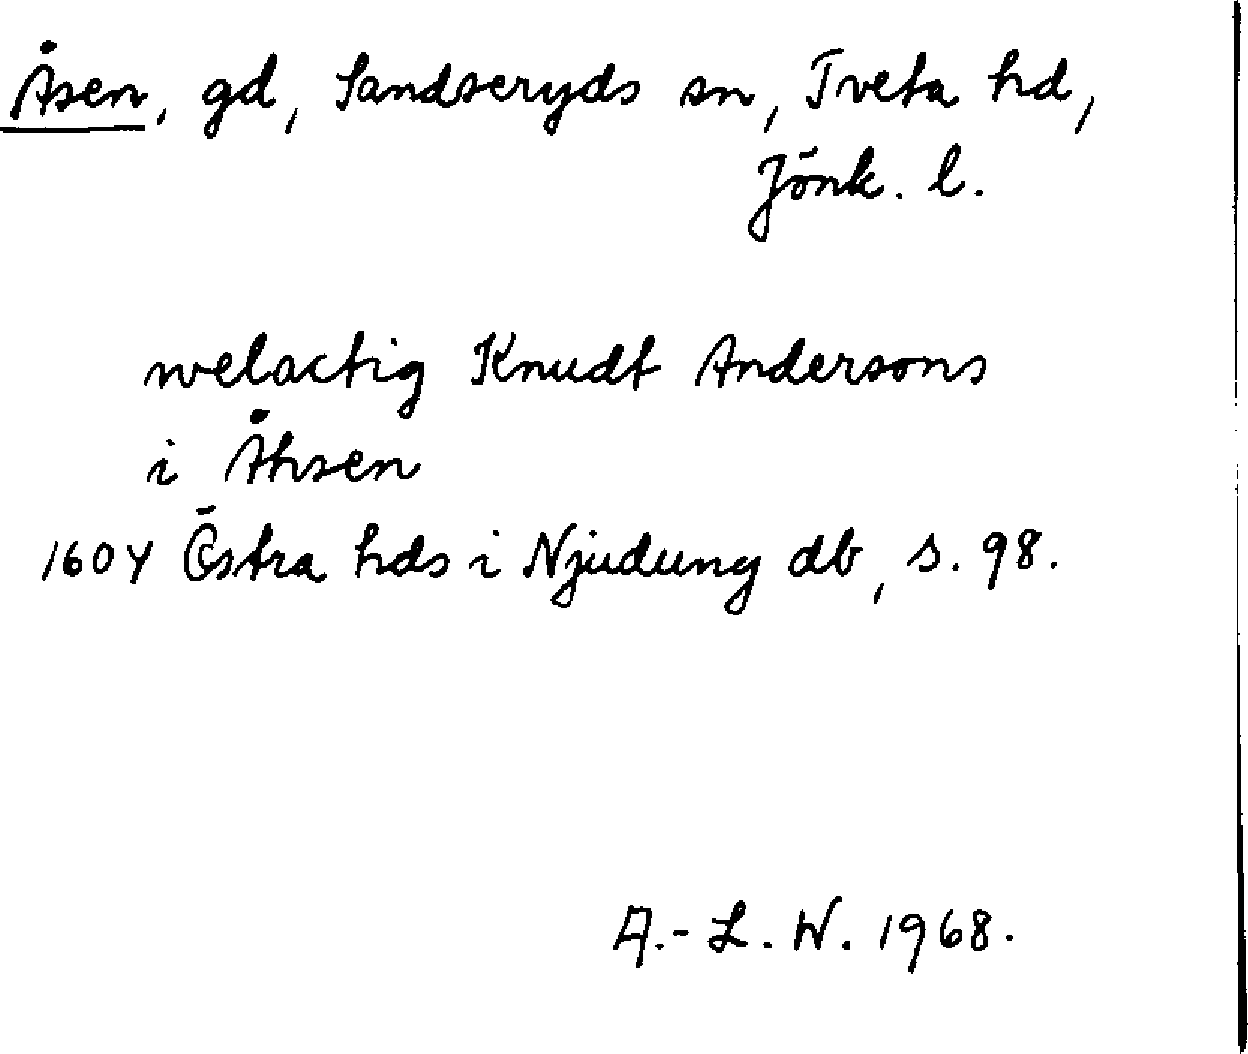 Åsen, gd, Sandseryds sn, Tveta hd,
Jönk. l.
welactig Knudt Andersons
i Åhsen
1604 Östra hds i Njudung db, s. 98.
A.-L. W. 1968.